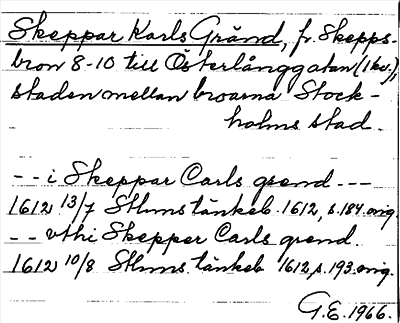 Skeppar Karls Gränd, fr. Skepps-
bron 8-10 till Österlånggatan (1 kv.),
staden mellan broarna Stock-
holms stad.
-- i Skeppar Carls grend ---
1612 13/7 Sthms tänkeb. 1612, s. 184 orig.
-- vthi Skepper Carls grend.
1612 10/8 Sthms. tänkeb 1612, s. 193. orig.
G.E. 1966.